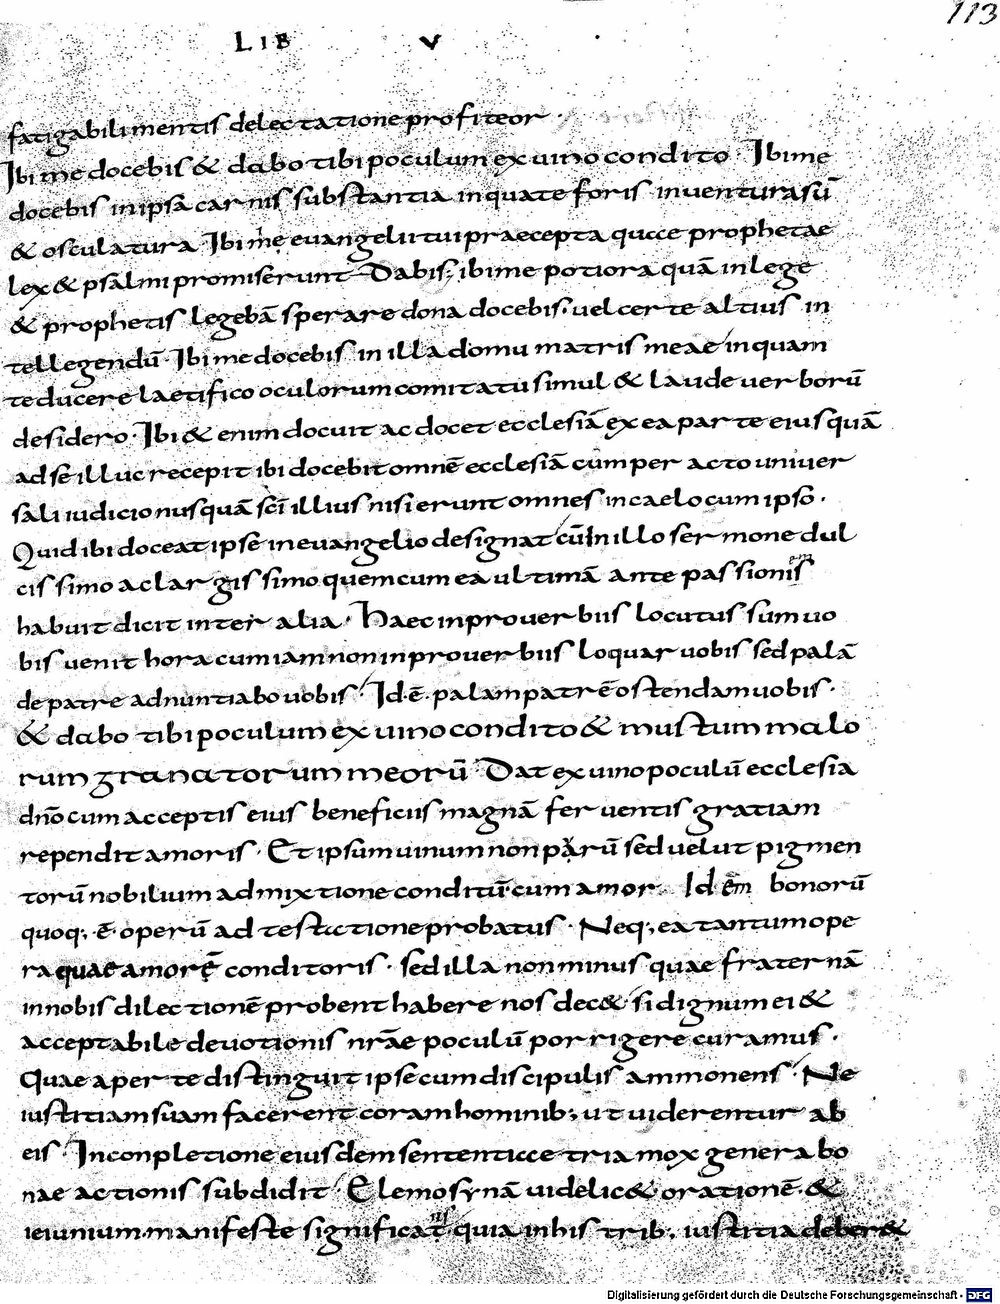 113
LIB V
fatigabili mentis delectatione profiteor.
Ibi me docebis & dabo tibi poculum ex uino condito. Ibi me
docebis in ipsā carnis substantia in qua te foris inuenturasū
& osculatura. Ibi me euangelii tui praecepta quae prophetae
lex & psalmi promiserunt. Dabis; ibi me potiora quā in lege
& prophetis legebā sperare dona docebis. uel certe altius in
tellegendū. Ibi me docebis in illa domu matris meae in quam
te ducere laetifico oculorum comitatu simul & laude uerborū
desidero. Ibi & enim docuit ac docet ecclesiā ex ea parte eius quā
ad se illuc recepit ibi docebit omnē ecclesiā cum peracto uniuer
sali iudicio nusquā sc̄i illius nisi erunt omnes in caelo cum ipso.
Quid ibi doceat ipse in euangelio designat cū in illo sermone dul
cissimo ac largissimo quem cum ea ultimā ante passionis
habuit dicit inter alia. Haec in prouerbiis locutus sum uo
bis uenit hora cum iam non in prouerbiis loquar uobis sed palā
de patre adnuntiabo uobis. Id ē. palam patrē ostendam uobis.
& dabo tibi poculum ex uino condito & mustum malo
rum granatorum meorū. Dat ex uino poculū ecclesia
dn̄o cum acceptis eius beneficiis magnā feruentis gratiam
rependit amoris. Et ipsum uinum non parū sed uelut pigmen
torū nobilium admixtione conditū. cum amor Idem bonorū
quoq; ē operū ad testatione probatus. Neq; ea tantum ope
ra quae amorē conditoris. sed illa non minus quae fraternā
in nobis dilectionē probent habere nos dec& si dignum ei &
acceptabile deuotionis nr̄ae poculū porrigere curamus.
Quae aperte distinguit ipse cum discipulis ammonens. Ne
iustitiam suam facerent coram hominib; ut uiderentur ab
eis. In conpletione eiusdem sententiae tria mox genera bo
nae actionis subdidit. Elemosynā uidelic& orationē. &
ieiunium. manifeste significat quia in his trib; iustitia deber&
Digitalisierung gefördert durch die Deutsche Forschungsgemeinschaft - DFG